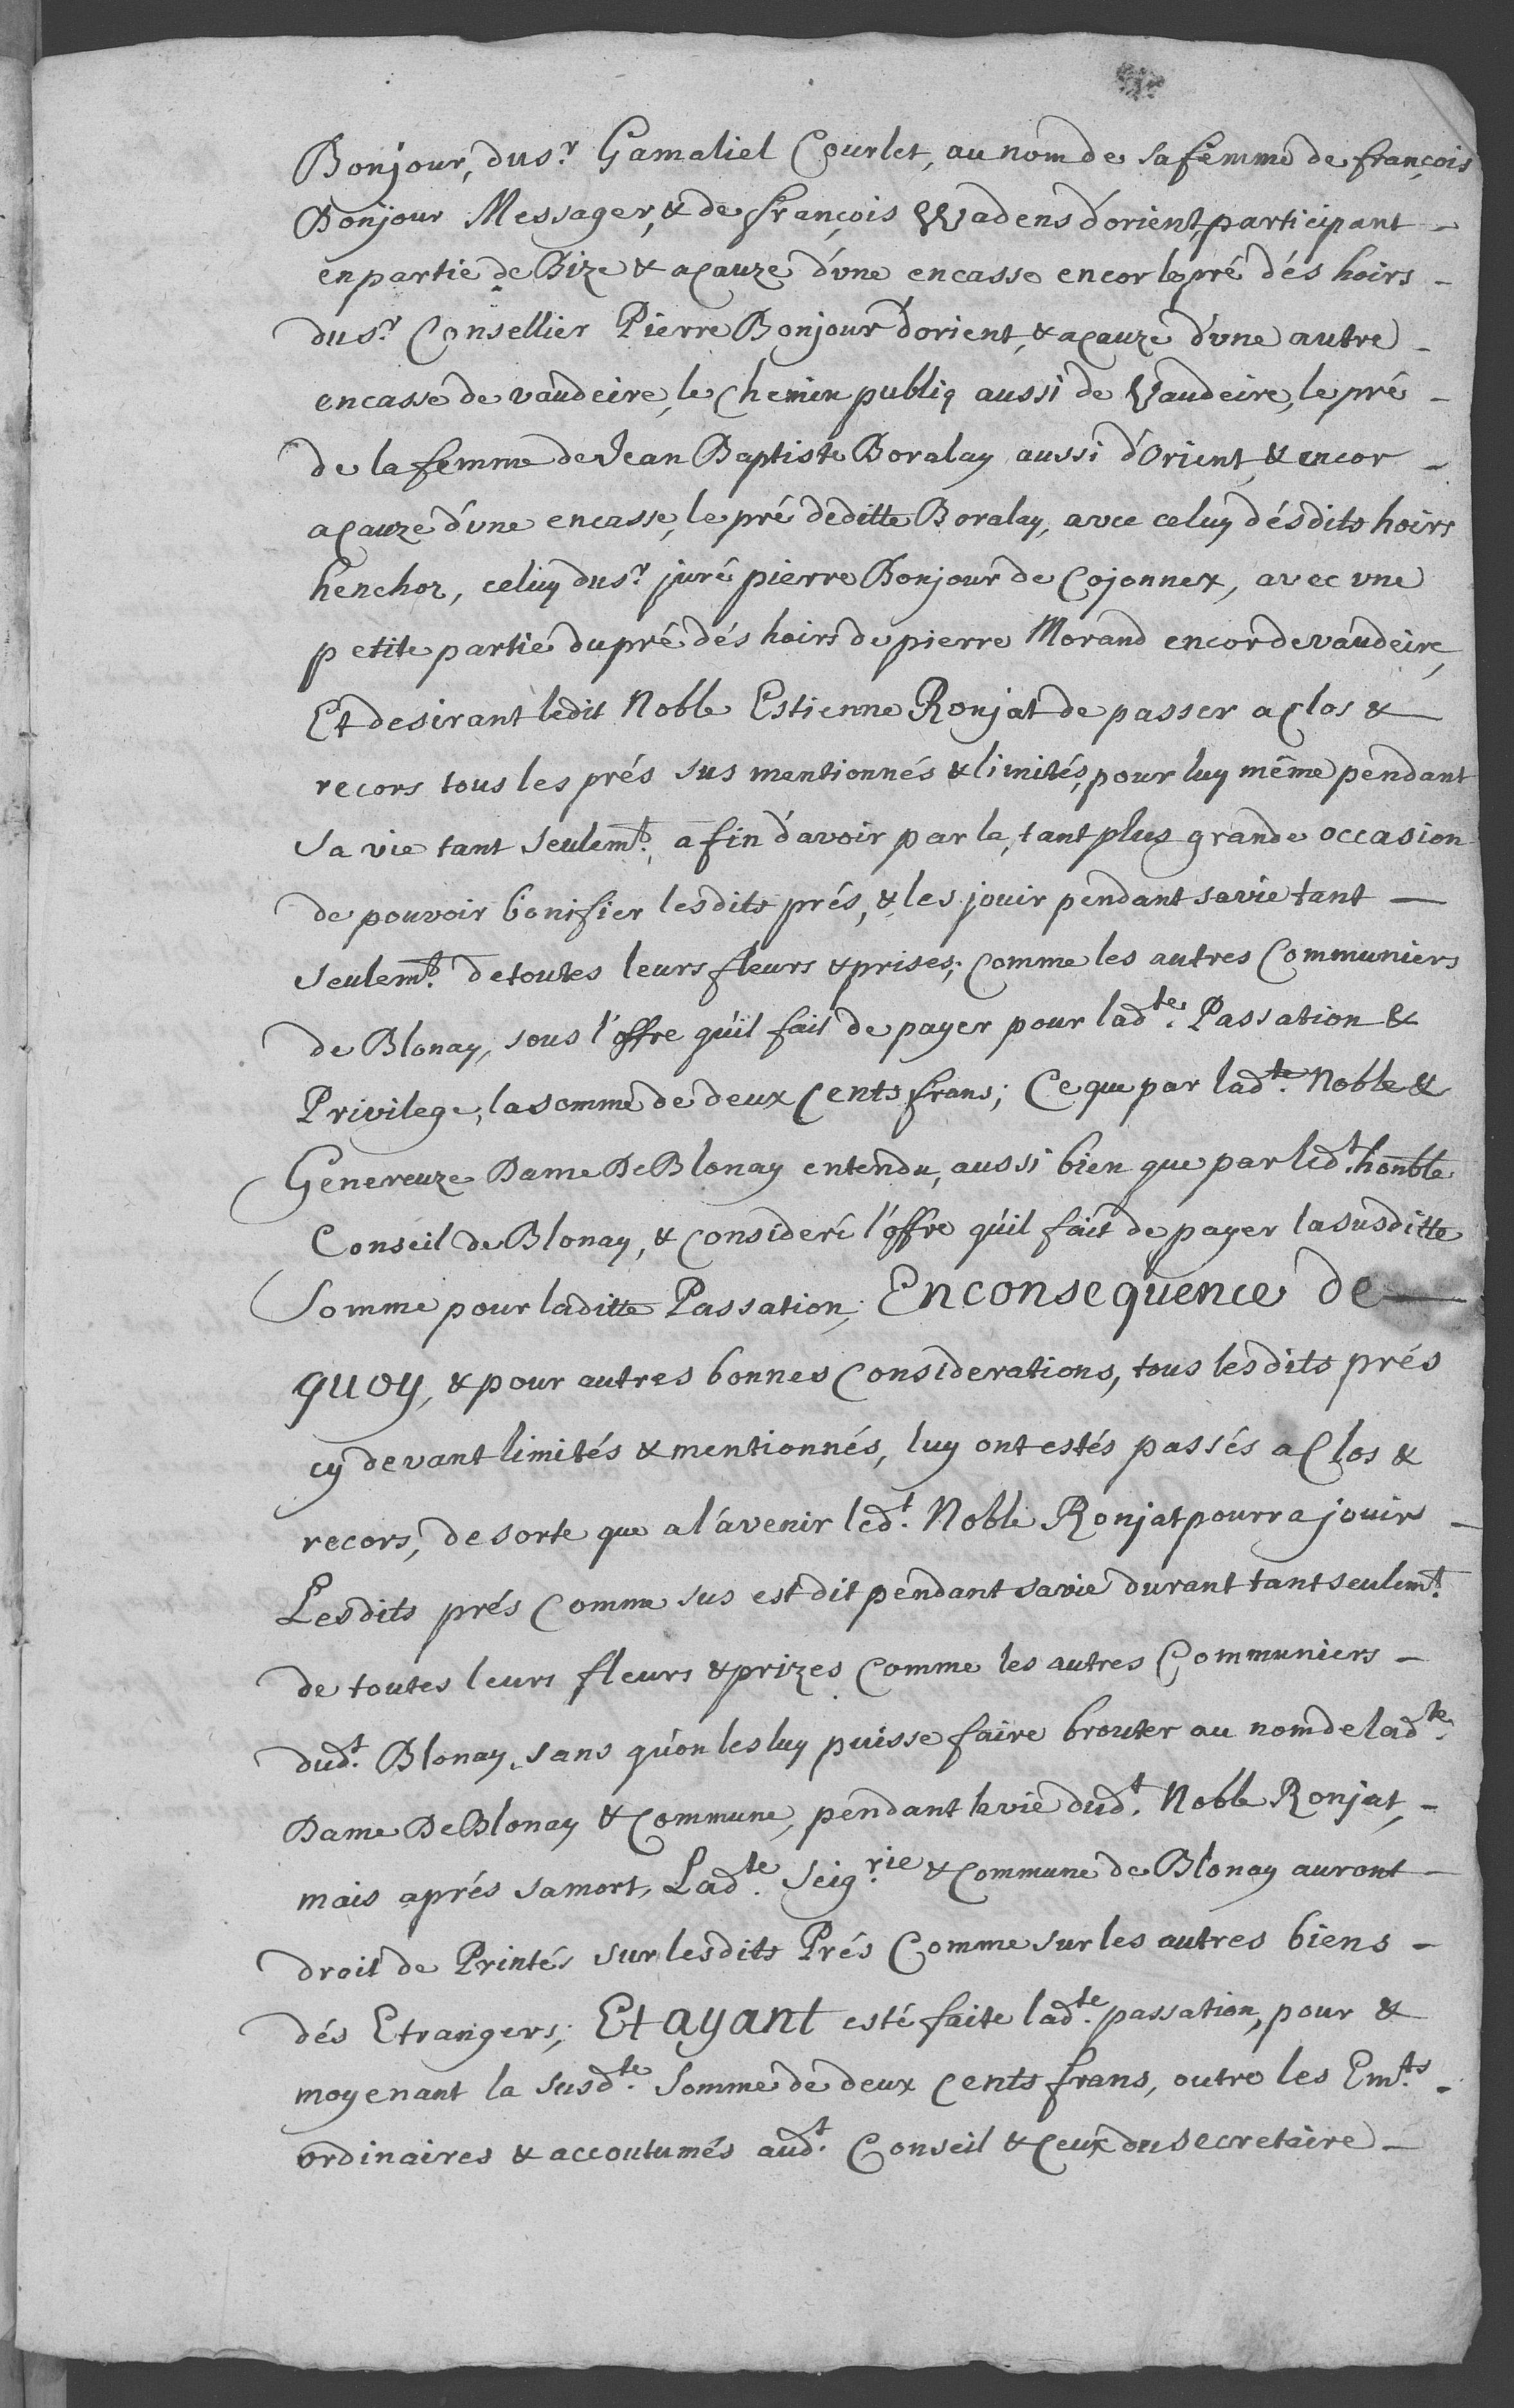 Bonjour, du sr. Gamaliel Courlet, au nom de sa femme de françois
Bonjour Messager, & de françois Wadens d'orient, participant -
en partie de Bize & a cauze d'une encasse encor le pré dés hoirs -
du sr. Consellier Pierre Bonjour d'orient, & a cauze d'une autre -
encasse de vaudeire, le Chemin publiq aussi de Vaudeire, le pré -
de la femme de Jean Baptiste Boralay aussi d'Orient, & encor -
a cauze d'une encasse, le pré de ditte Boralay, avec celuy désdits hoirs
henchoz, celuy du sr. juré pierre Bonjour de Cojonnex, avec une
petite partie du pré dés hoirs de pierre Morand encor de vaudeire,
Et desirant ledit Noble Estienne Ronjat de passer a Clos &
recors tous les prés sus mentionnés & limités, pour luy même pendant
sa vie tant seulemt., afin d'avoir par la, tant plus grande occasion
de pouvoir bonifier lesdits prés, & les jouir pendant sa vie tant —
seulemt. de toutes leurs fleurs & prises, Comme les autres Communiers
de Blonay, sous l'offre qu'il fait de payer pour ladte. Passation &
Privilege, la somme de deux Cents frans; Ce que par ladte. Noble &
Genereuze Dame De Blonay entendu, aussi bien que par ledt. honble
Conseil de Blonay, & Consideré l'offre qu'il fait de payer la susditte
Somme pour laditte Passation; En consequence de —
quoy, & pour autres bonnes Considerations, tous lesdits prés
cy devant limités & mentionnés, luy ont estés passés a Clos &
recors, de sorte que a l'avenir ledt. Noble Ronjat pourra jouir -
Lesdits prés Comme sus est dit pendant sa vie durant tant seulemt.
de toutes leurs fleurs & prizes Comme les autres Communiers -
dudt. Blonay, sans qu'on les luy puisse faire brouter au nom de ladte.
Dame De Blonay & Commune, pendant la vie dudt. Noble Ronjat, -
mais aprés sa mort, Ladte. Seigrie. & Commune de Blonay auront -
droit de Printés sur lesdits Prés Comme sur les autres biens -
dés Etrangers; Et ayant esté faite ladte. passation, pour &
moyenant la susdte. Somme de deux Cents frans, outre les Emts. -
ordinaires & accoutumés audt. Conseil & Ceux du secretaire -